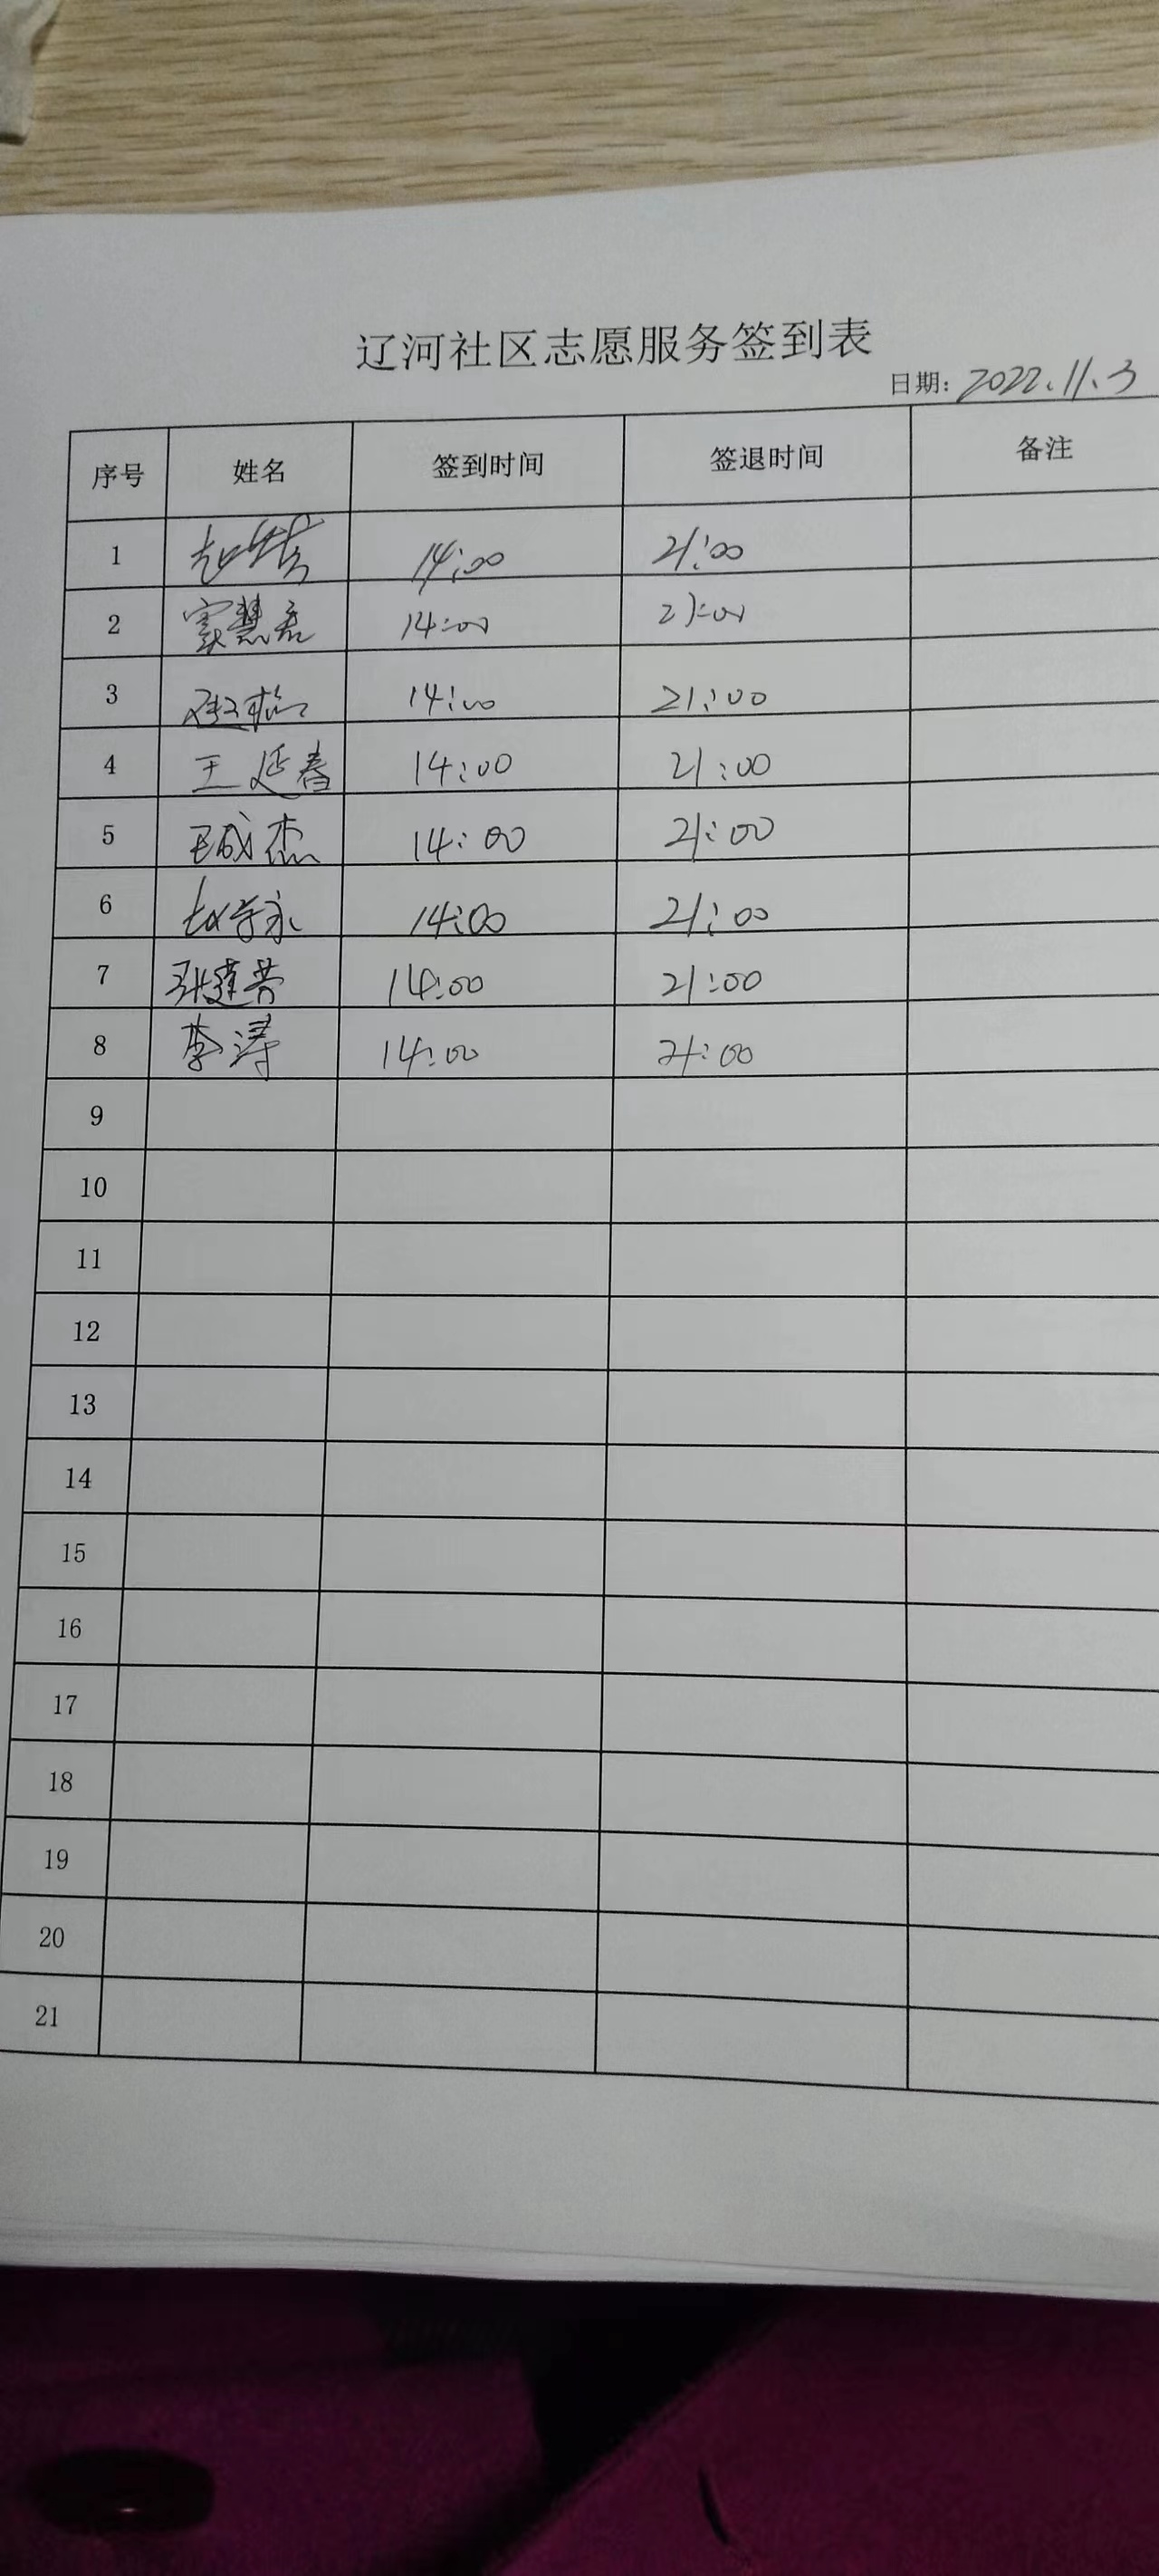 辽河社区志愿服务签到表
日期: 2022.11.3
序号 姓名 签到时间 签退时间 备注
1 14:00 21:00
2 窦慧君 14:00 21:00
3 14:00 21:00
4 王延春 14:00 21:00
5 王成杰 14:00 21:00
6 赵学永 14:00 21:00
7 张莲芳 14:00 21:00
8 李涛 14:00 21:00
9
10
11
12
13
14
15
16
17
18
19
20
21